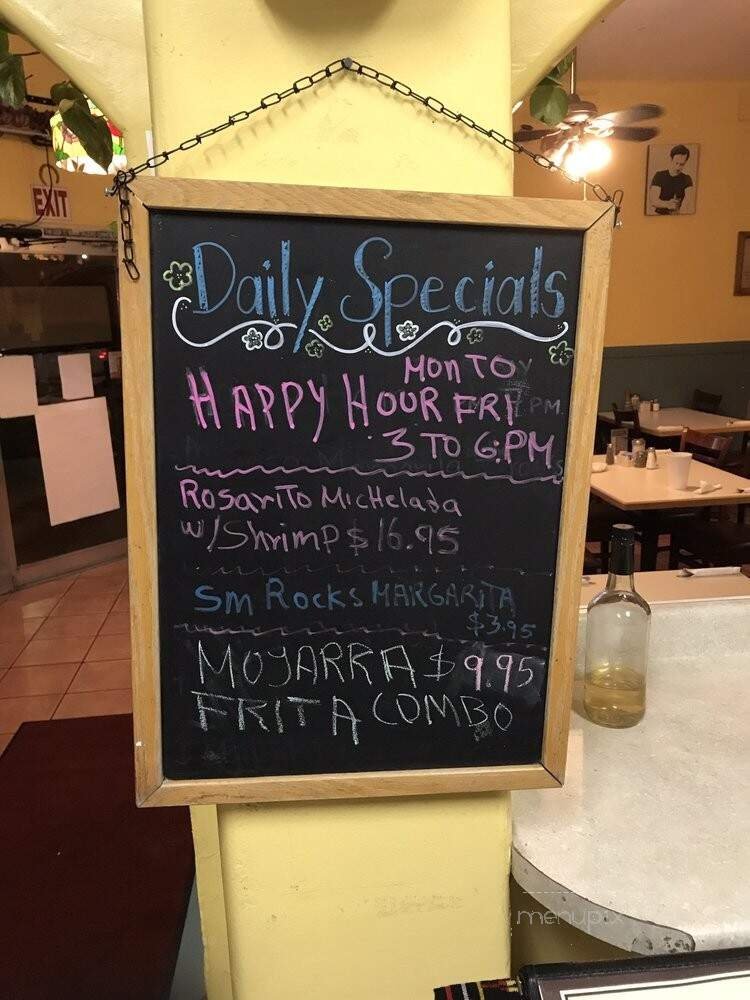 EXIT
Daily Specials
MON TO
HAPPY HOUR FRI
3 TO 6:PM
PM
RosariTo MicHelada
w/Shrimp $16.95
Sm Rocks MARGARITA
$3.95
MOJARRA $9.95
FRITA COMBO
menupix